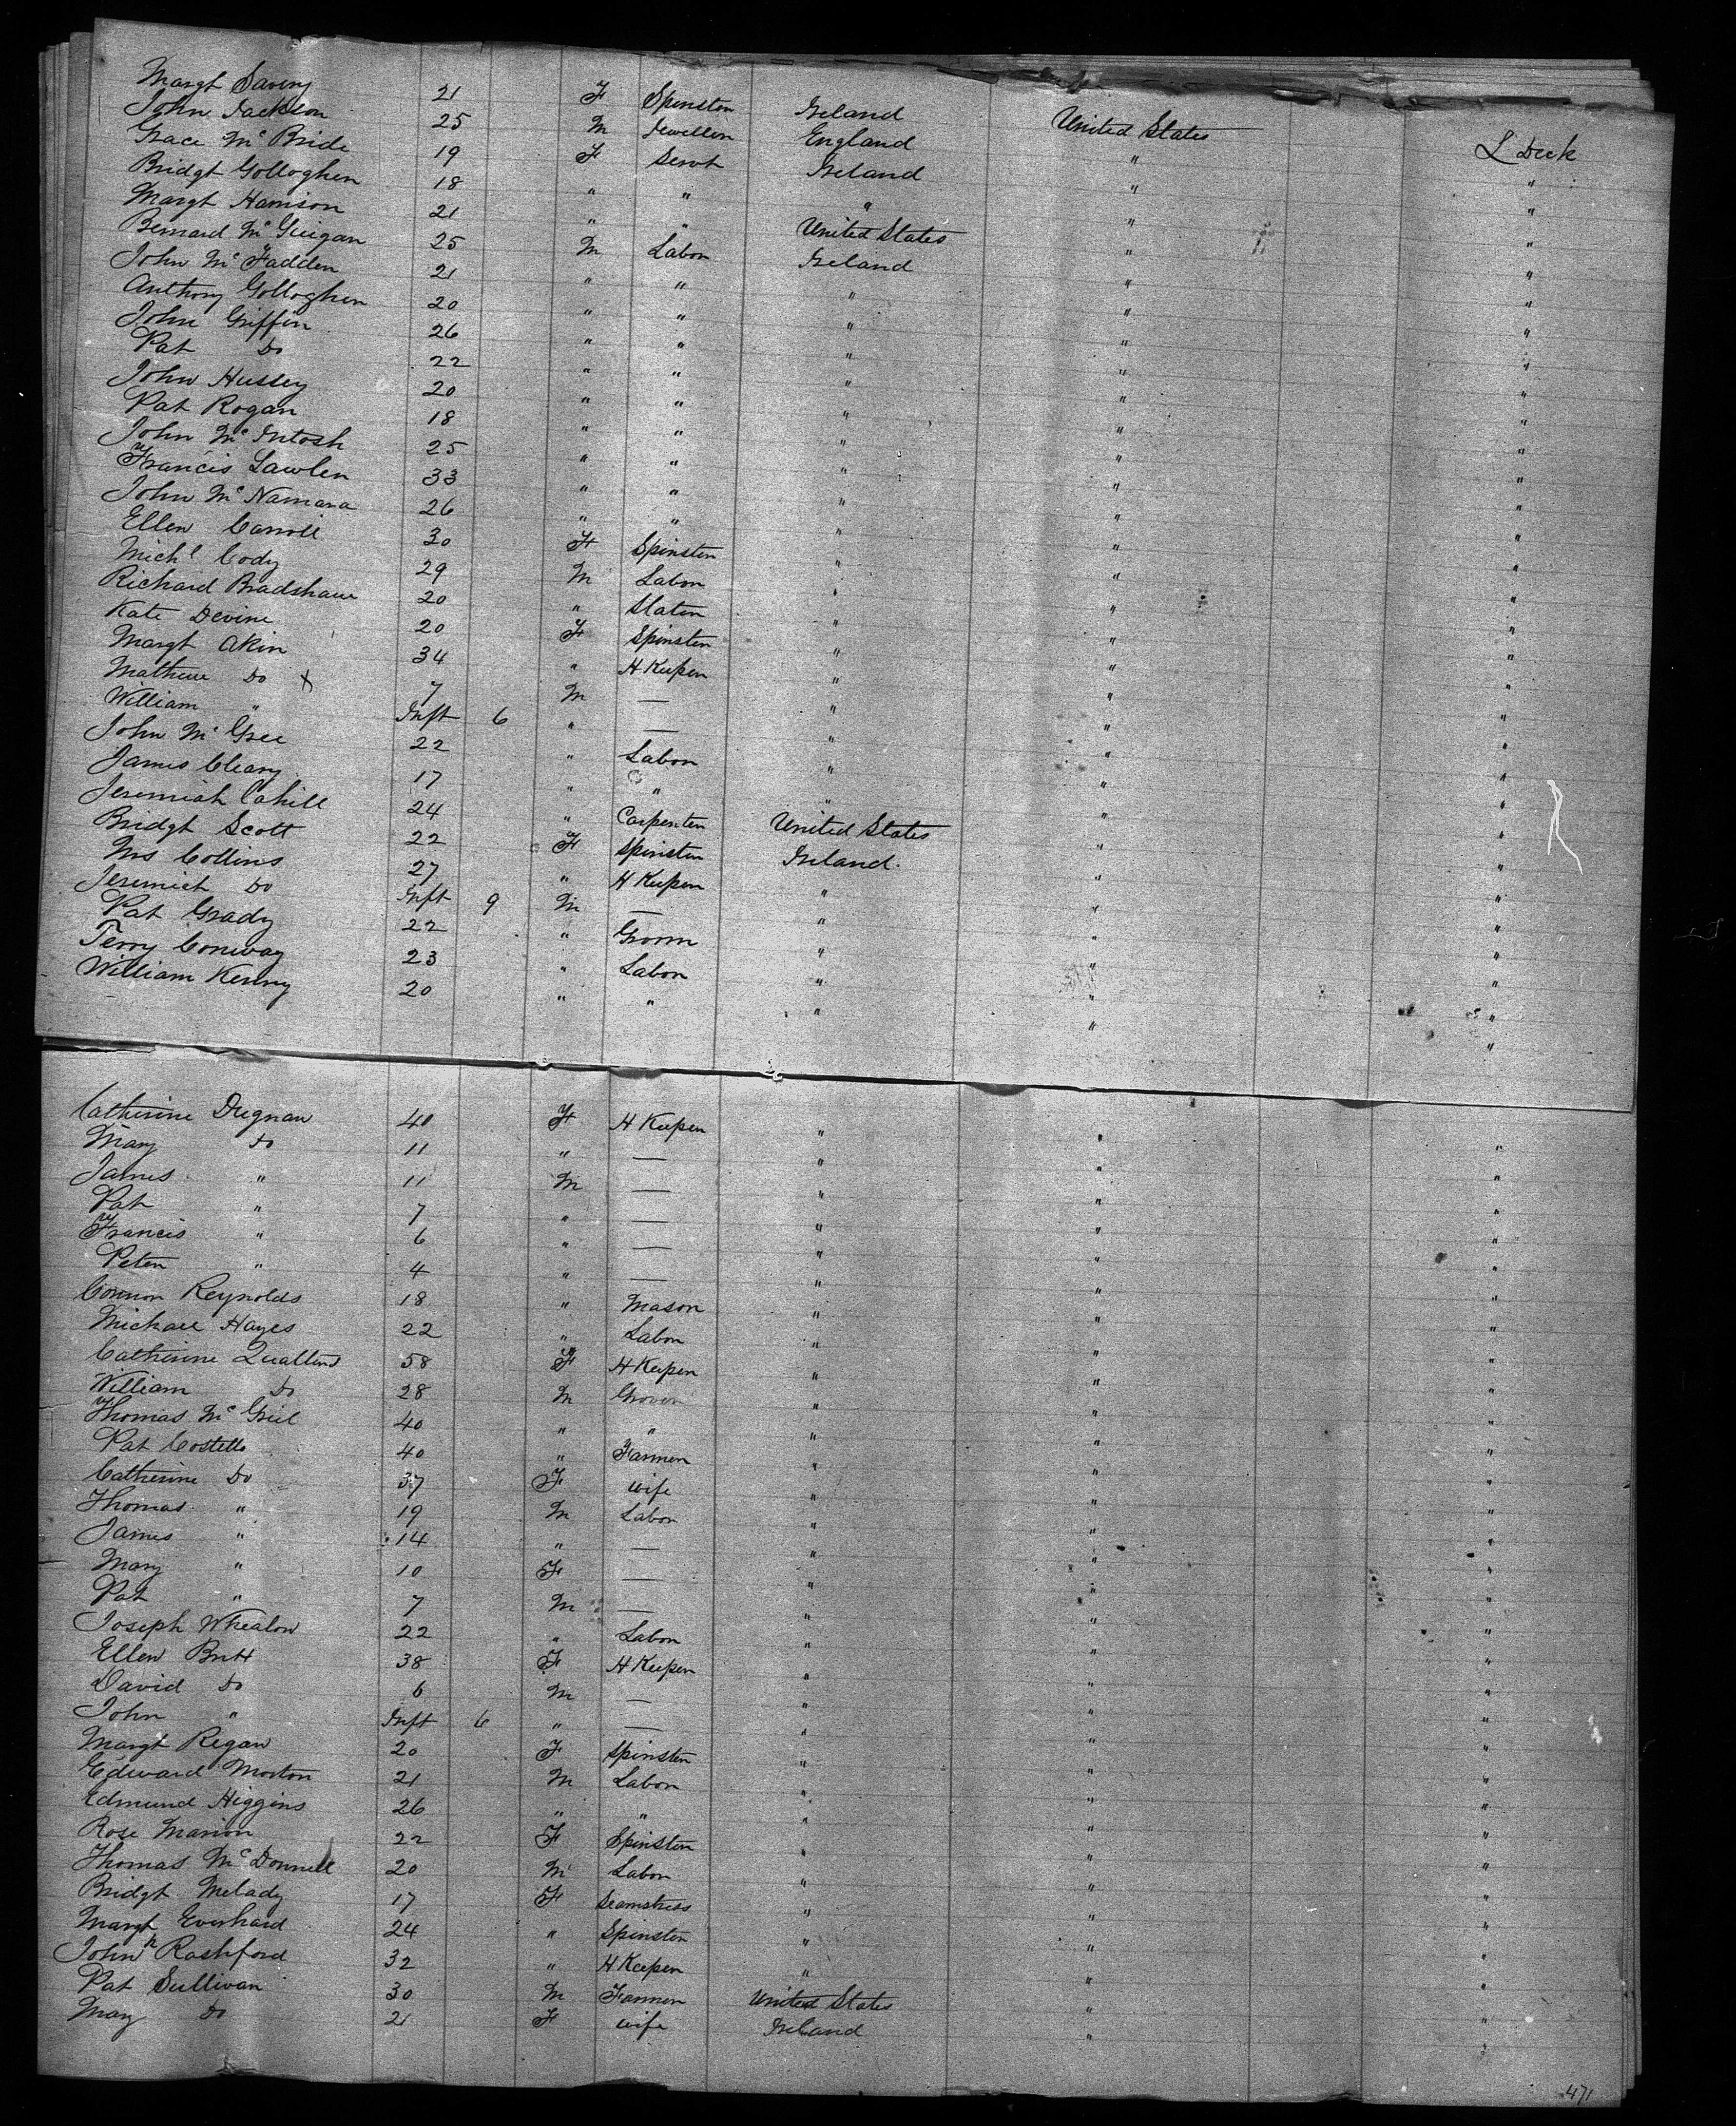 Margt Savery 21 F Spinster Ireland United States L Deck
John Jackson 25 M Jeweller England " "
Grace Mc Bride 19 F Servt Ireland " "
Bridgt Golloghen 18 " " " " "
Margt Harrison 21 " " United States " "
Bernard Mc Guigan 25 M Labor Ireland " "
John Mc Fadden 21 " " " " "
Anthony Golloghen 20 " " " " "
John Griffin 26 " " " " "
Pat Do 22 " " " " "
John Hussey 20 " " " " "
Pat Rogan 18 " " " " "
John Mc Intosh 25 " " " " "
Francis Lawler 33 " " " " "
John Mc Namara 26 " " " " "
Ellen Carroll 30 F Spinster " " "
Michl Cody 29 M Labor " " "
Richard Bradshaw 20 " Slater " " "
Kate Devine 20 F Spinster " " "
Margt Akin 34 " H Keeper " " "
Mathew Do x 7 M — " " "
William " Inft 6 " — " " "
John Mc Gree 22 " Labor " " "
James Cleary 17 " " " " "
Jeremiah Cahill 24 " Carpenter United States " "
Bridgt Scott 22 F Spinster Ireland " "
Mrs Collins 27 " H Keeper " " "
Jeremiah Do Inft 9 M — " " "
Pat Grady 22 " Groom " " "
Terry Conway 23 " Labor " " "
William Kenny 20 " " " " "
Catherine Dugnan 40 F H Keeper " " "
Mary Do 11 " — " " "
James " 11 M — " " "
Pat " 7 " — " " "
Francis " 6 " — " " "
Peter " 4 " — " " "
Connor Reynolds 18 " Mason " " "
Michael Hayes 22 " Labor " " "
Catherine 58 F H Keeper " " "
William Do 28 M Grocer " " "
Thomas Mc Griel 40 " " " " "
Pat Costello 40 " Farmer " " "
Catherine Do 37 F Wife " " "
Thomas " 19 M Labor " " "
James " 14 " — " " "
Mary " 10 F — " " "
Pat " 7 M — " " "
Joseph Whealon 22 " Labor " " "
Ellen Britt 38 F H Keeper " " "
David Do 6 M — " " "
John " Inft 6 " — " " "
Margt Regan 20 F Spinster " " "
Edward Morton 21 M Labor " " "
Edmund Higgins 26 " " " " "
Rose Marion 22 F Spinster " " "
Thomas Mc Donnell 20 M Labor " " "
Bridgt Melady 17 F Seamstress " " "
Margt Everhard 24 " Spinster " " "
John Rashford 32 " H Keeper " " "
Pat Sullivan 30 M Farmer United States " "
May Do 21 F Wife Ireland " "
471